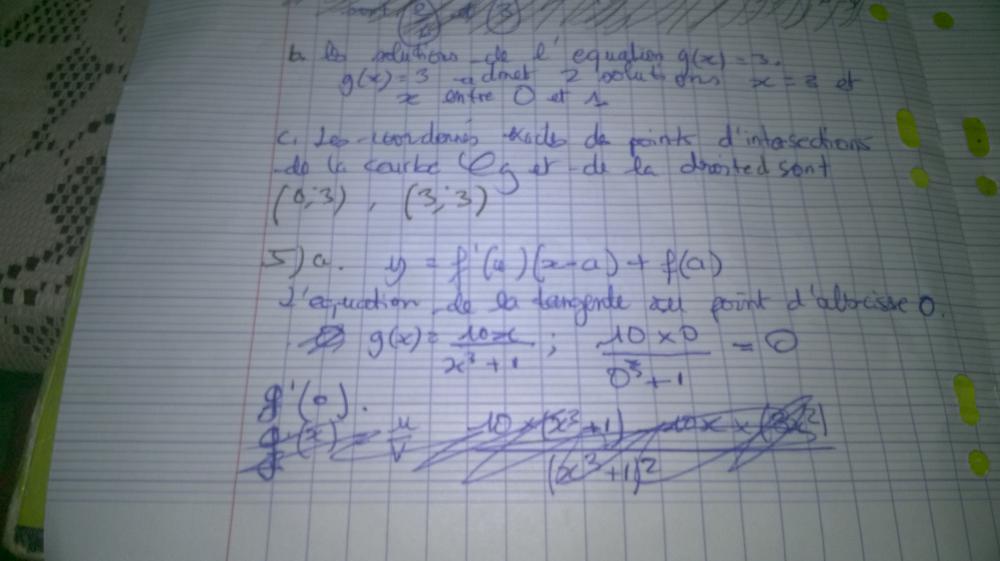 b. les solutions de l'equation g(x) = 3.
g(x) = 3 admet 2 solutions x = 3 et
x entre 0 et 1
c. Les coordonnés de points d'intersections
de la courbe Cg et de la droite d sont
(0;3), (3;3)
5) a. y = f'(a)(x-a) + f(a)
L'equation de la tangente au point d'abscisse 0.
g(x) = 10x / x³ + 1 ; 10 × 0 / 0³ + 1 = 0
g'(0).
g'(x) = u / v 10 × (x³ + 1) 10x × (3x²) / (x³ + 1)²